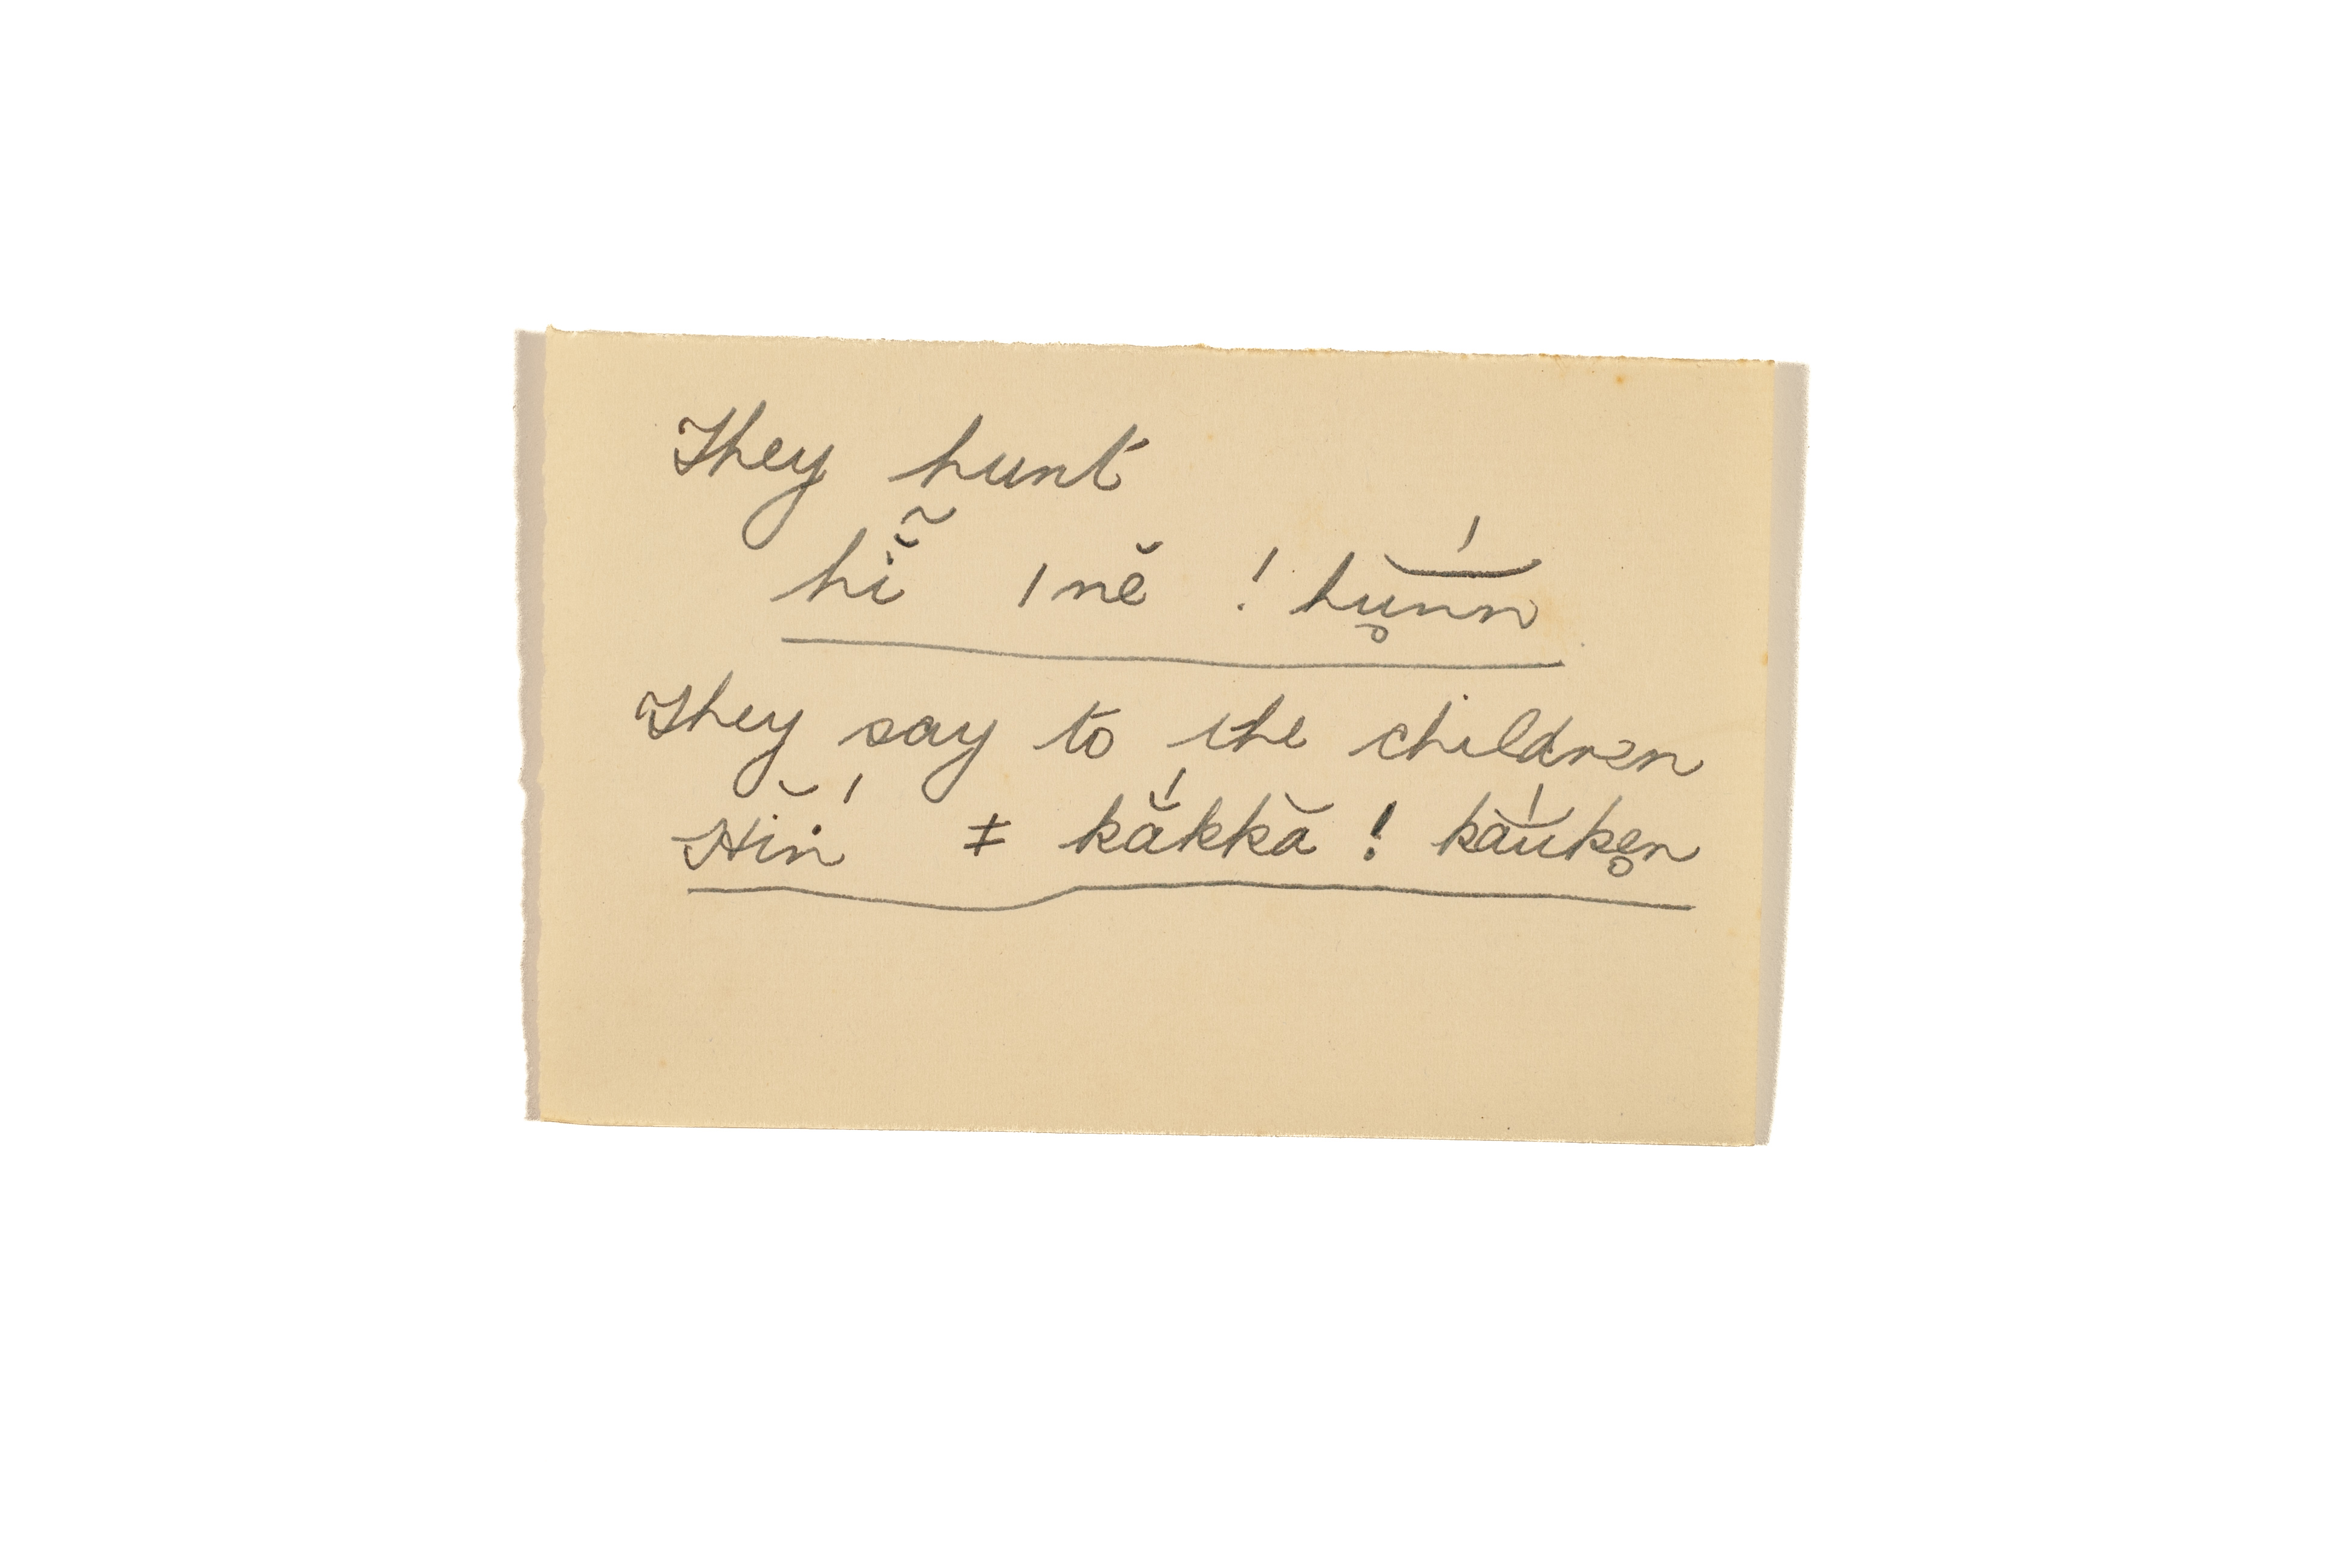 They hunt
hĭ̃ ǀnĕ ! hu̥n̆́n
They say to the children
Hĭń ǂ kắkkă ! kăŭ́ke̥n